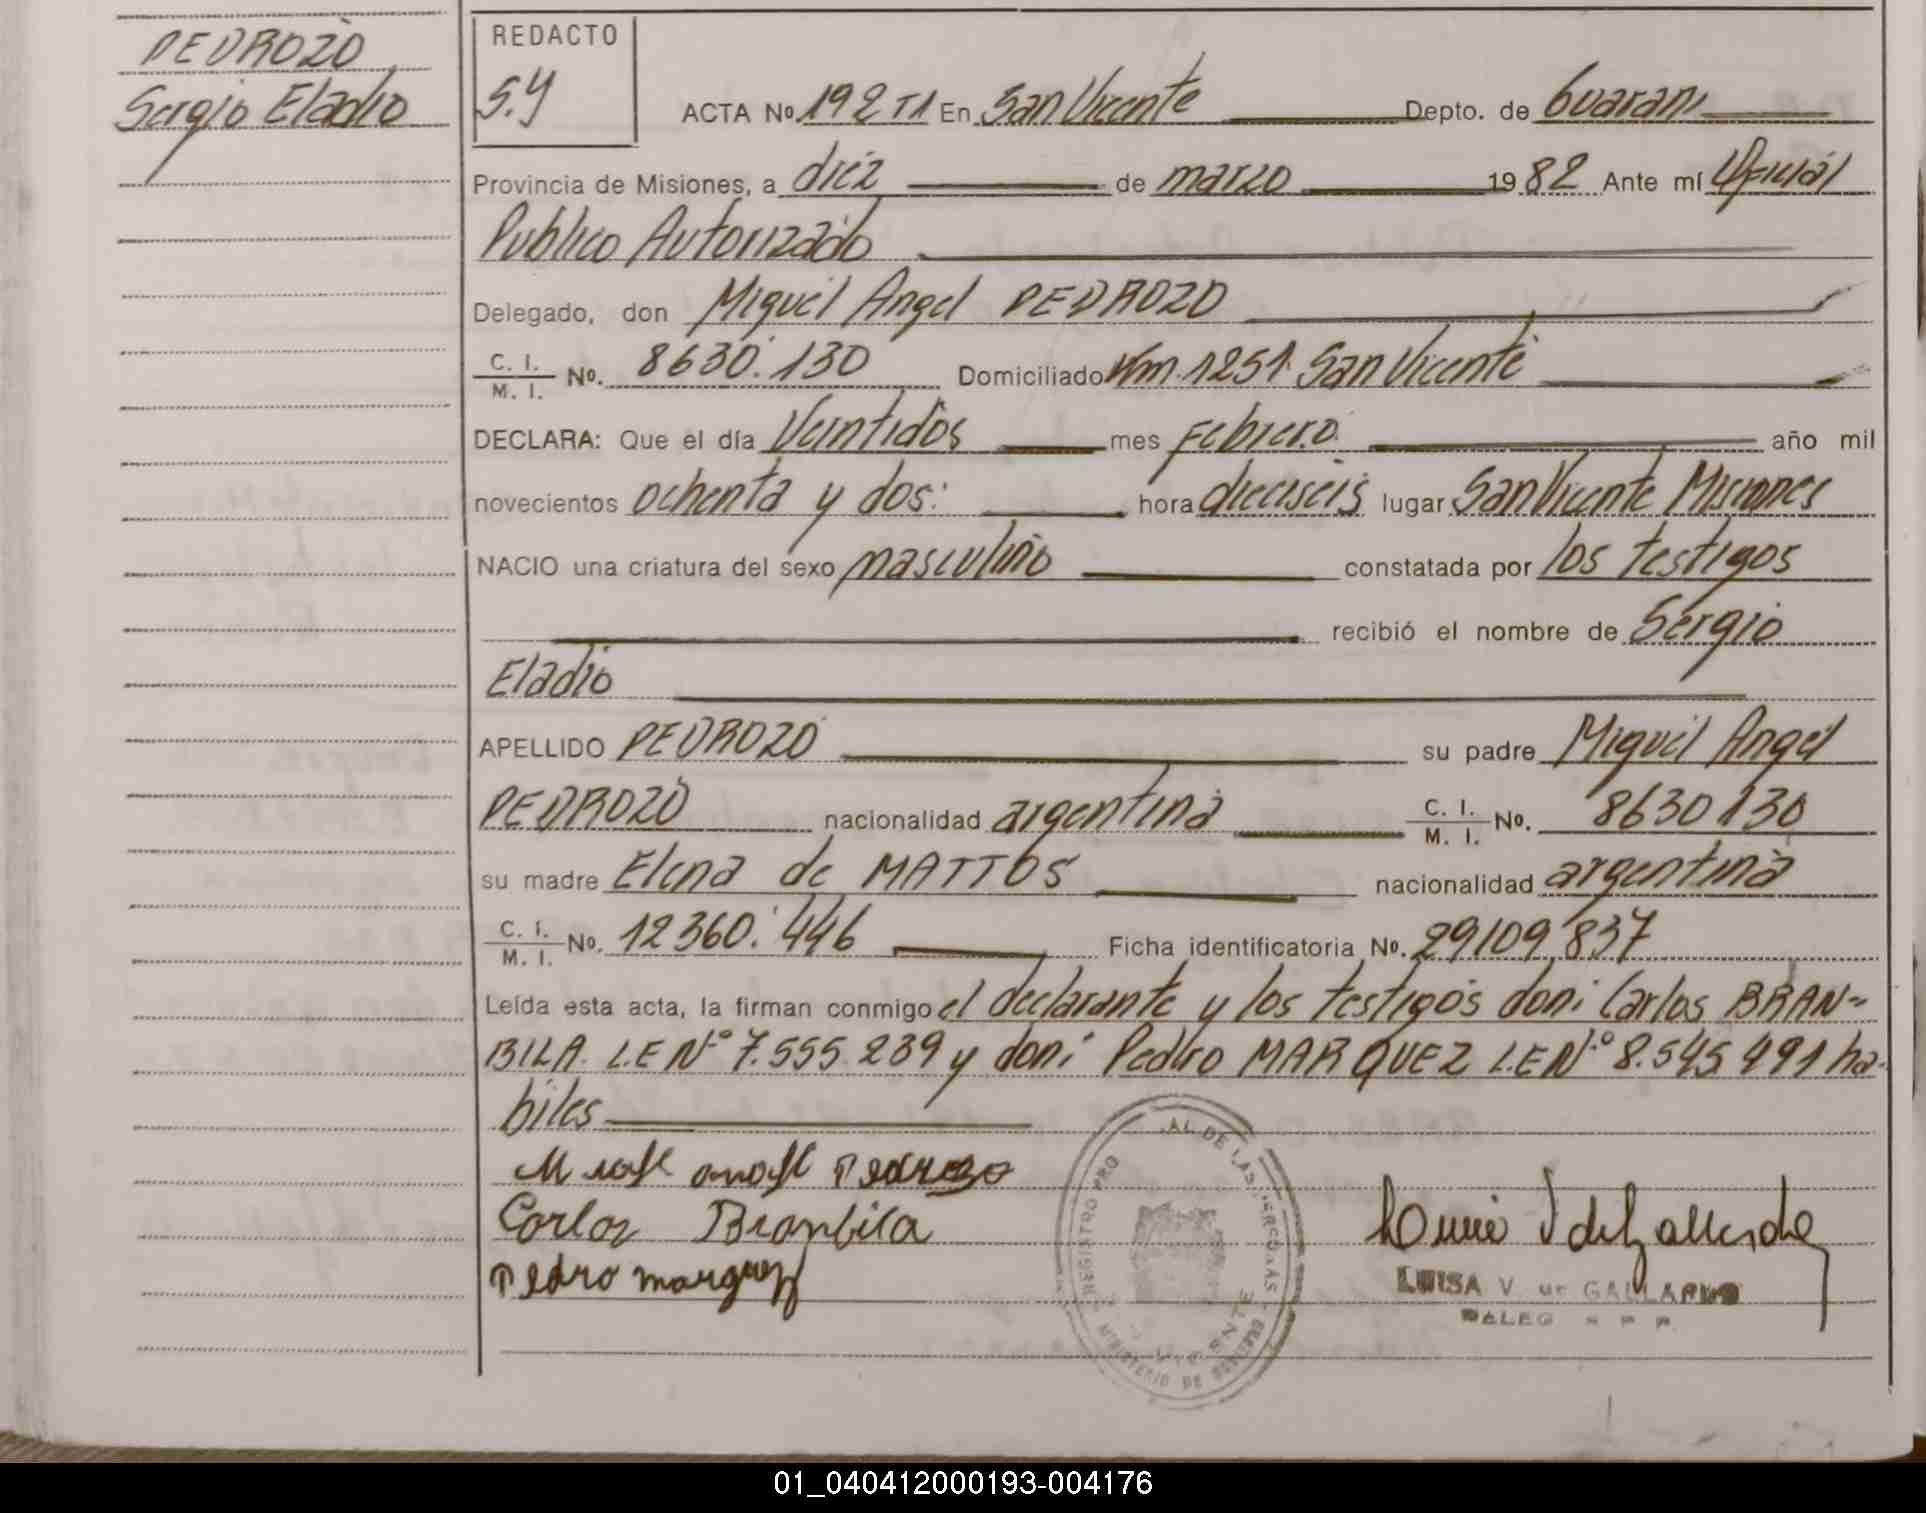 PEDROZO
Sergio Eladio
REDACTO
S.Y
ACTA No. 192 T1 En San Vicente Depto. de Guarani
Provincia de Misiones, a diez de marzo 1982 Ante mí Oficial
Publico Autorizado
Delegado, don Miguel Angel PEDROZO
C. I. / M. I. No. 8630.130 Domiciliado Km. 1251. San Vicente
DECLARA: Que el día Veintidos mes Febrero año mil
novecientos ochenta y dos: hora dieciseis lugar San Vicente Misiones
NACIO una criatura del sexo masculino constatada por los testigos
recibió el nombre de Sergio
Eladio
APELLIDO PEDROZO su padre Miguel Angel
PEDROZO nacionalidad argentina C. I. / M. I. No. 8630130
su madre Elena de MATTOS nacionalidad argentina
C. I. / M. I. No. 12360.446 Ficha identificatoria No. 29109837
Leída esta acta, la firman conmigo el declarante y los testigos don: Carlos BRAN-
BILA. L.E N.º 7.555.239 y don: Pedro MARQUEZ L.E N.º 8.545.491 ha-
biles
Pedrozo
Carlos Brambila
Pedro marquez
REGISTRO PRO AL DE LAS PERSONAS
MINISTERIO DE GOBIERNO
LUISA V. de GALLARDO
01_040412000193-004176